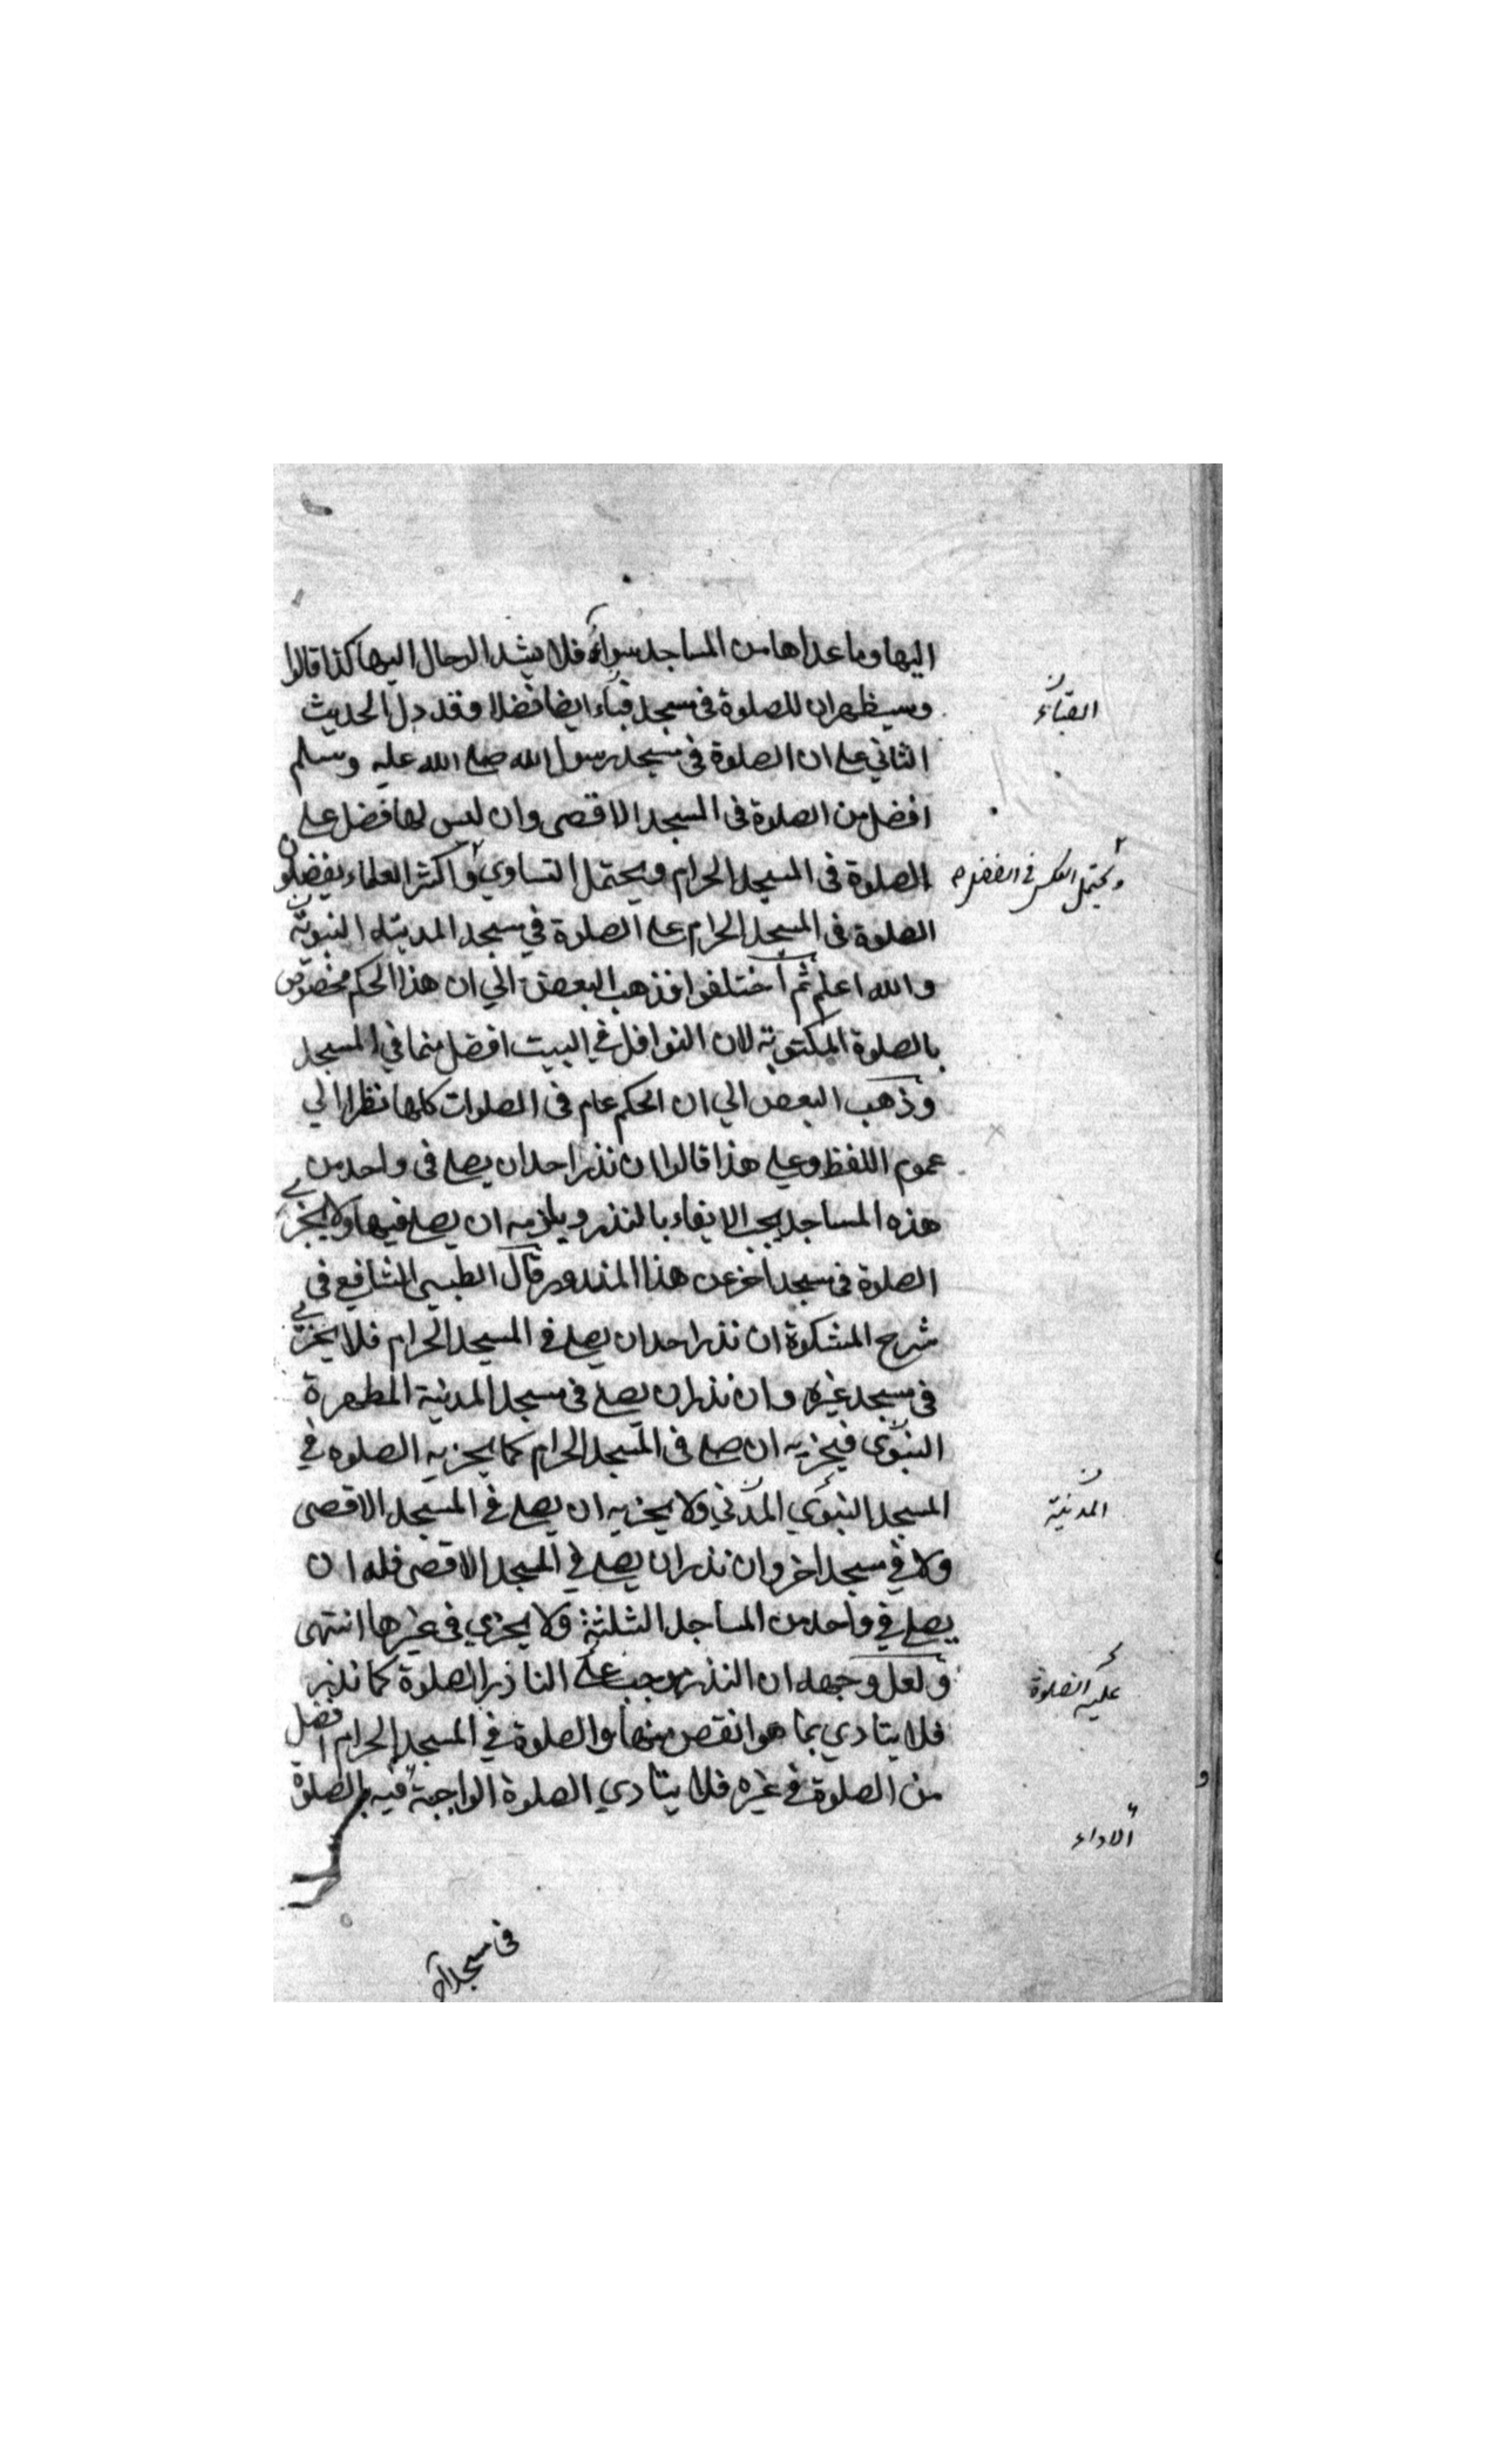 اليها وما عداها من المساجد سواء فلا يشد الرحال اليها كذا قالوا
وسيظهر ان للصلوة فى مسجد قباء ايضا فضلا وقد دل الحديث
القباء
الثاني على ان الصلوة فى مسجد رسول الله صلى الله عليه وسلم
افضل من الصلوة فى المسجد الاقصى وان ليس لها فضل على
الصلوة فى المسجد الحرام ويحتمل التساوي واكثر العلماء يفضلون
ويحتمل العكس في الفضل
الصلوة فى المسجد الحرام على الصلوة في مسجد المدينة النبوية
والله اعلم ثم اختلفوا فذهب البعض الي ان هذا الحكم مخصوص
بالصلوة المكتوبة لان النوافل في البيت افضل منها في المسجد
وذهب البعض الي ان الحكم عام فى الصلوات كلها نظرا الي
عموم اللفظ وعلى هذا قالوا ان نذر احد ان يصلى فى واحد من
هذه المساجد يجب الايفاء بالنذر ويلزمه ان يصلى فيها ولا يجزي
الصلوة فى مسجد اخر عن هذا المنذور قال الطيبي الشافعي فى
شرح المشكوة ان نذر احد ان يصلى فى المسجد الحرام فلا يجزي
فى مسجد غيره وان نذر ان يصلى فى مسجد المدينة المطهرة
النبوى فيجزيه ان صلى فى المسجد الحرام كما يجزيه الصلوه في
المسجد النبوي المدني ولا يجزيه ان يصلى في المسجد الاقصى
المدنية
ولا في مسجد اخر وان نذر ان يصلى في المسجد الاقصى فله ان
يصلى في واحد من المساجد الثلثة ولا يجزي فى غيرها انتهى
ولعل وجهه ان النذر يوجب على الناذر الصلوة كما نذر
عليه الصلوة
فلا يتادي بما هو انقص منها والصلوة في المسجد الحرام افضل
من الصلوة في غيره فلا يتادي الصلوة الواجبة فيه بالصلوة
الاداء
فى مسجد اخر